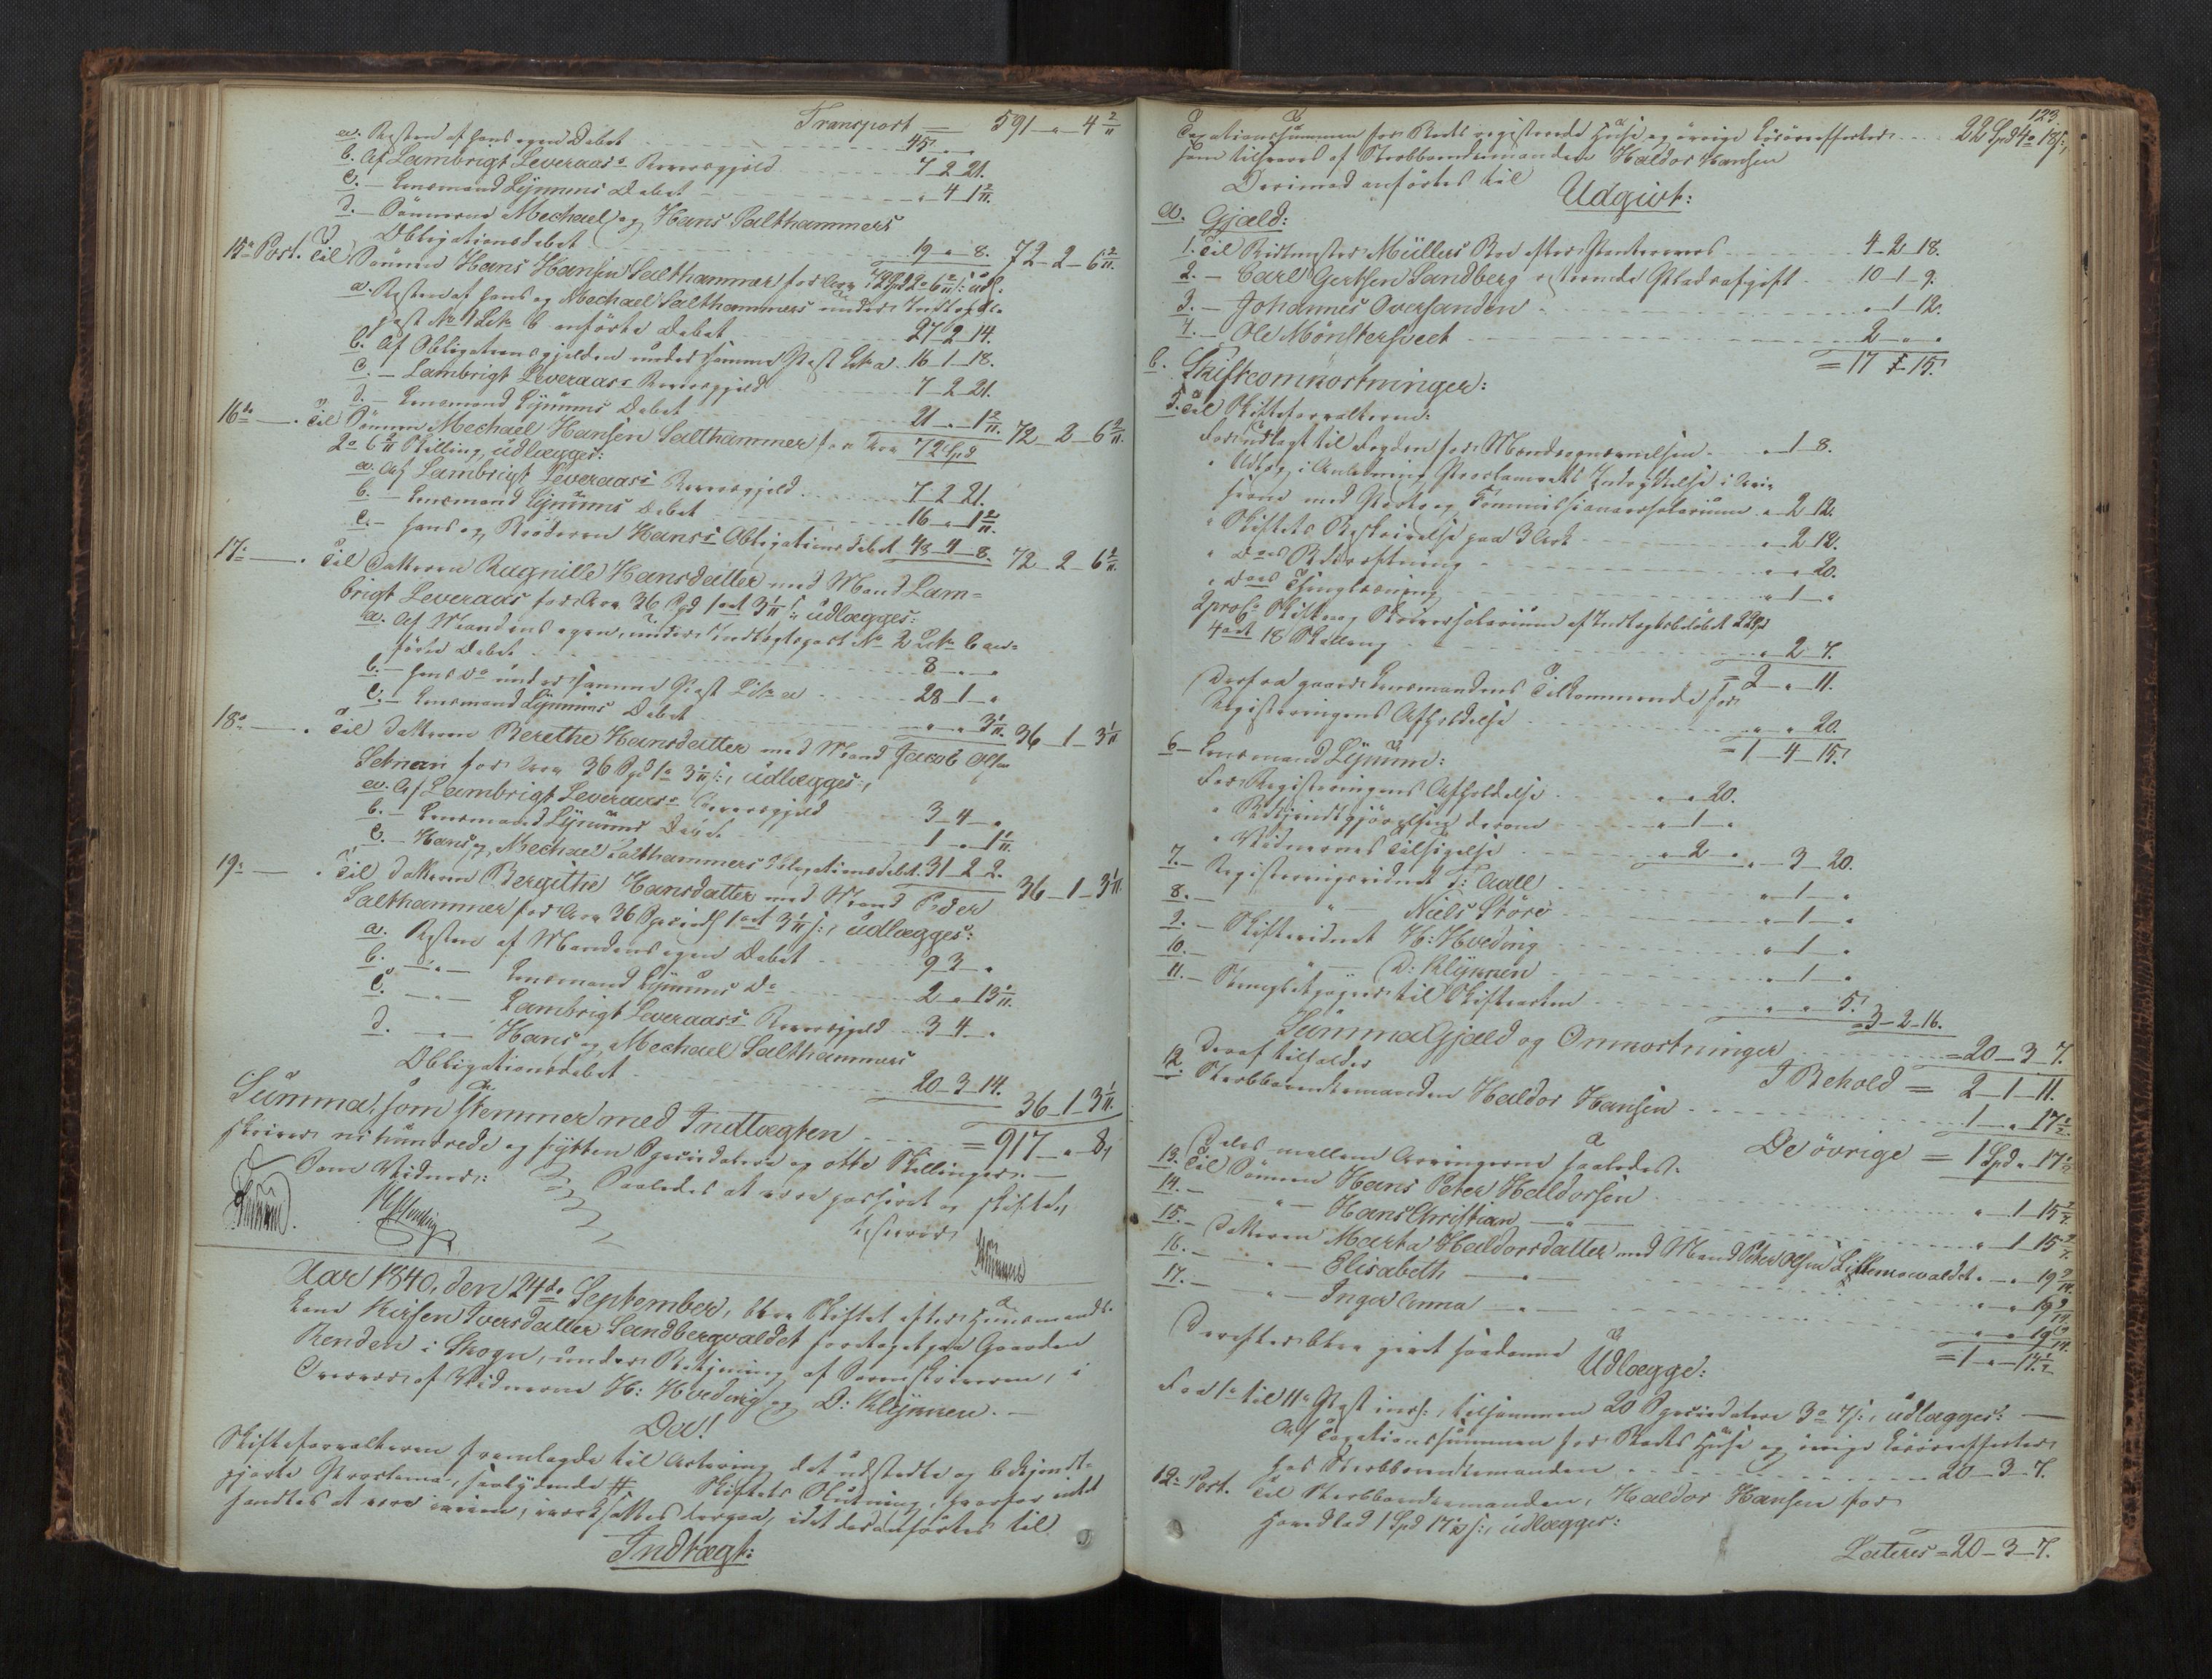 Transport = 591 " 4 2/11
a. Resten af hans egen Debet 45 " "
b. Af Lambrigt Leveraas's Reversgjeld 7 2 21.
c. — Lensmand Lynums Debet " 4 1 2/11.
d. — Sönnerne Mechael og Hans Salthammers
Obligationsdebet 19 " 8. 72 2 6 2/11.
15de Post. Til Sönnen Hans Hansen Salthammer for Arv 72 Spd 2 6 2/11 s: udl.
a. Resten af hans og Mechael Salthammers under Indtægts
post No 1 Litr. b anförte Debet 27 2 14.
b. Af Obligationsgjelden under samme Post Litr a 16 1 18.
c. — Lambrigt Leveraas's Reversgjeld 7 2 21.
d. — Lensmand Lynums Debet 21 " 1 2/11. 72 2 6 2/11.
16de — . Til Sönnen Mechael Hansen Salthammer for Arv 72 Spd
2 6 2/11 Skilling, udlægges:
a. Af Lambrigt Leveraas's Reversgjeld 7 2 21.
b. — Lensmand Lynums Debet 16 " 1 2/11.
c. — hans og Broderen Hans's Obligationsdebet 48 4 8. 72 2 6 2/11.
17de — . Til Datteren Ragnille Hansdatter med Mand Lam=
brigt Leveraas for Arv 36 Spd 1 ort 3 1/11 s: udlægges:
a. Af Mandens egen, under Indtægtspost No 2 Litr b an=
förte Debet 8 " "
b. — hans do under samme Post Litr a 28 1 "
c. — Lensmand Lynums Debet " " 3 1/11. 36 1 3 1/11
18de — . Til Datteren Berethe Hansdatter med Mand Jacob Olsen
Setnan for Arv 36 Spd 1 3 1/11 s:, udlægges:
a. Af Lambrigt Leveraas's Reversgjeld 3 4 "
b. — Lensmand Lynums Debet 1 " 1 1/11.
c. — Hans og Mechael Salthammers Obligationsdebet 31 2 2. 36 1 3 1/11.
19de — . Til Datteren Bergithe Hansdatter med Mand Peder
Salthammer for Arv 36 Speciedl 1 ort 3 1/11 s:, udlægges:
a. Resten af Mandens egen Debet 9 3 "
b. — " — Lensmand Lynums Do 2 " 13 1/11.
c. — " — Lambrigt Leveraas's Reversgjeld 3 4 "
d. — " — Hans og Mechael Salthammers
Obligationsdebet 20 3 14. 36 1 3 1/11.
Summa, som stemmer med Indtægten = 917 " 8,
skriver ni hundrede og sytten Speciedaler og otte Skillinger. —
Som Vidner: Saaledes at være passeret og skiftet,
testerer
Aar 1840, den 24de September, blev Skiftet efter Huusmands
kone Kirsen Iversdatter Sandbergvaldet foretaget paa Gaarden
Renden i Skogn, under Betjening af Sorenskriveren, i
Overvær af Vidnerne H: Hveding og D: Klynnen. —
Da!
Skifteforvalteren fremlagde til Actering det udstedte og bekjendt=
gjorte Proclama, saalydende # Skiftets Slutning, hvorfor intet
fandtes at være iveien, iværksattes derpaa, idet der anförtes til
Indtægt:
123.
Taxationssummen for Boets registrerede Huse og övrige Lösöreeffecter 22 Spd 4 18 s:,
som tilsvares af Sterbboenkemanden Haldor Hansen
Derimod anförtes til
Udgivt:
a. Gjæld:
1. Til Ritmester Müllers Boe efter Panterevers 4 2 18.
2. — Carl Gertsen Sandberg resterende Pladsafgift 10 1 9.
3. — Johannes Oversanden " 1 12.
4. — Ole Mönsterhveet 2 " "
= 17 1 15.
b. Skiftcomkostninger:
5. Til Skifteforvalteren:
For Udlagt til Fogden for Mandsopnævnelsen " 1 8.
" Udlæg i Anledning Proclamaets Indrykkelse i Avi=
serne med Porto og Commissionairsalarium " 2 12.
" Skiftets Beskrivelse paa 3 Ark " 2 12.
" Dets Bekræftning " " 20.
" Dets Thinglæsning " 1 "
2 proCt Skifte og Skriversalarium af Indtægtsbelöbet 22 Spd
4 ort 18 Skilling " 2 7.
= 2 " 11.
Derfra gaaer Lensmandens Tilkommende for
Registreringens Afholdelse " " 20.
= 1 4 15.
6 — Lensmand Lynum:
For Registreringens Afholdelse " " 20.
" Bekjendtgjörelsen derom " 1 "
" Vidnernes Tilsigelse " 2 " " 3 20.
7. — Registreringsvidnet T: Aall " 1 "
8. — " Niels Störe " 1 "
9. — Skiftevidnet H: Hveding " 1 "
10. — " D: Klynnen " 1 "
11. — Stempletpapir til Skifteacten " " 5.
= 3 2 16.
Summa Gjæld og Omkostninger = 20 3 7.
I Behold = 2 1 11.
Deraf tilfalder
12. Sterbboenkemanden Haldor Hansen 1 " 17 1/2.
De övrige = 1 Spd " 17 1/2
Deles mellem Arvingerne saaledes:
13. Til Sönnen Hans Peter Haldorsen " 1 15 2/7.
14. — " — Hans Christian — " — " 1 15 2/7.
15. — Datteren Marta Haldorsdatter med Mand Peter Olsen Lillemovaldet " " 19 9/14.
16. — " — Elisabeth — " — " " 19 9/14.
17. — " — Inger Anna — " — " " 19 9/14.
= 1 " 17 1/2.
Derefter blev gjort saadanne
Udlægge:
For 1ste til 11te Post incl:, tilsammen 20 Speciedaler 3 7 s:, udlægges:
Af Taxationssummen for Boets Huse og övrige Lösöreeffecter
hos Sterbboenkemanden 20 3 7.
12te Post. Til Sterbboenkemanden, Haldor Hansen for
Hovedlod 1 Spd 17 1/2 s:, udlægges:
Lateres = 20 3 7.